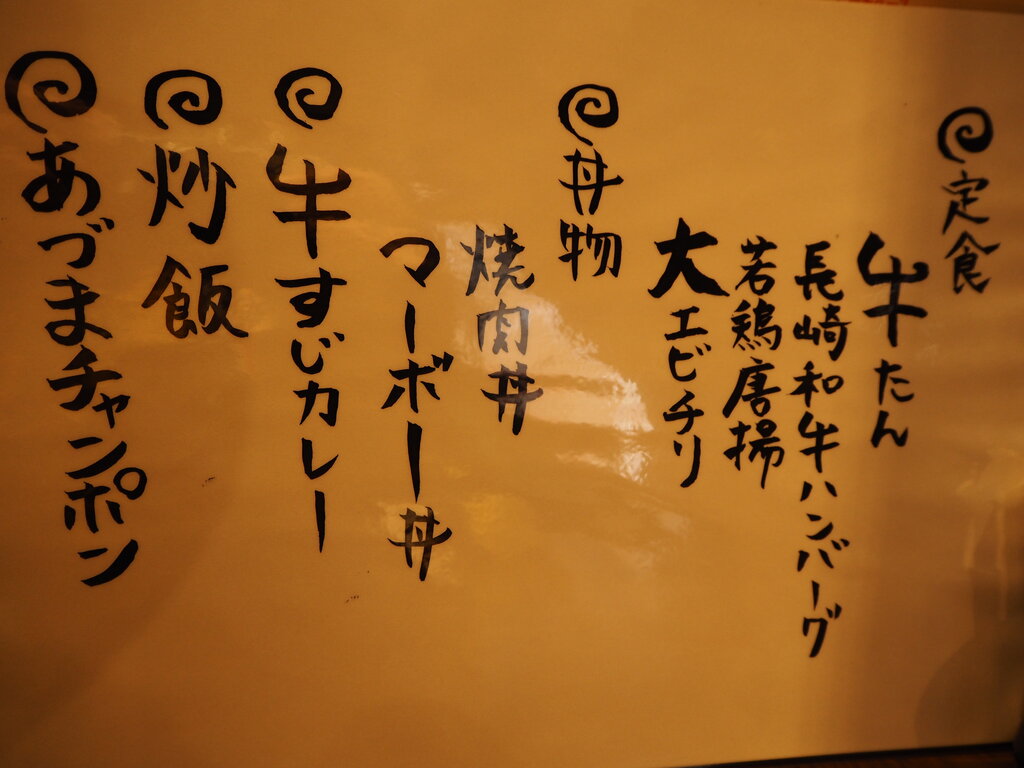 定食
牛たん
長崎和牛ハンバーグ
若鶏唐揚
大エビチリ
丼物
焼肉丼
マーボー丼
牛すじカレー
炒飯
あづまチャンポン